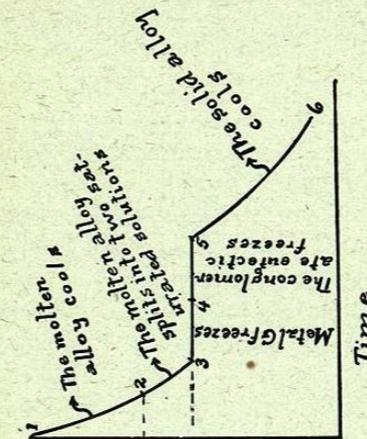 1
The molten
alloy cools
2
The molten alloy
splits into two sat-
urated solutions
3
Metal G freezes
4
The conglomer-
ate eutectic
freezes
5
The solid alloy
cools
6
Time